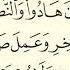 نَ هَادُوا۟ وَٱلنَّصَ
خِرِ وَعَمِلَ صَ